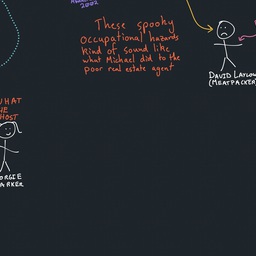 2002
These spooky
occupational hazards
kind of sound like
what Michael did to the
poor real estate agent
DAVID LAYLOW
(MEATPACKER)
WHAT
THE
GHOST